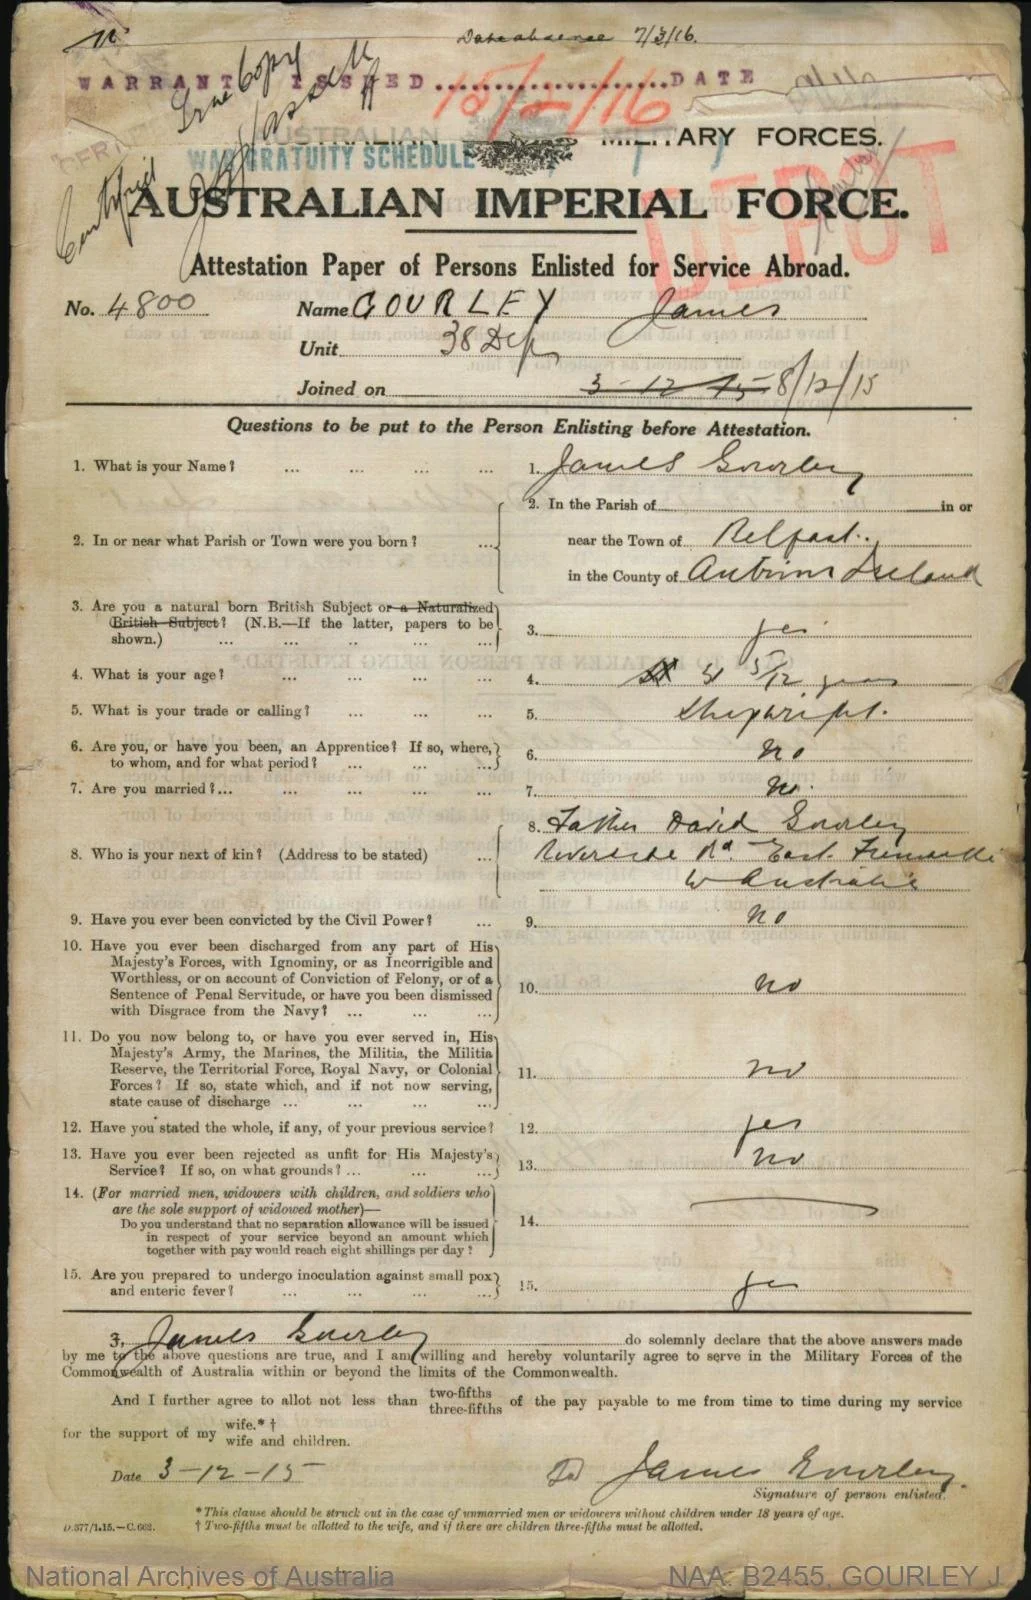 Date absence 7/3/16.
WARRANT ISSUED DATE
True Copy
Certified
AUSTRALIAN MILITARY FORCES.
WAR GRATUITY SCHEDULE
DEPOT
AUSTRALIAN IMPERIAL FORCE.
Attestation Paper of Persons Enlisted for Service Abroad.
No. 4800 Name GOURLEY James
Unit 38 Dep
Joined on 3-12-15 8/12/15
Questions to be put to the Person Enlisting before Attestation.
1. What is your Name? ... ... ... ... 1. James Gourley
2. In the Parish of in or
2. In or near what Parish or Town were you born? ... near the Town of Belfast.
in the County of Antrim Ireland
3. Are you a natural born British Subject or a Naturalized
British Subject? (N.B.—If the latter, papers to be
shown.) ... ... ... ... ... 3. yes
4. What is your age? ... ... ... ... 4. 31 5/12 years
5. What is your trade or calling? ... ... ... 5. Shipwright.
6. Are you, or have you been, an Apprentice? If so, where,
to whom, and for what period? ... ... ... 6. No
7. Are you married?... ... ... ... ... 7. No.
8. Father David Gourley
8. Who is your next of kin? (Address to be stated) ... Riverside Rd. East Fremantle
W Australia
9. Have you ever been convicted by the Civil Power? ... 9. No
10. Have you ever been discharged from any part of His
Majesty's Forces, with Ignominy, or as Incorrigible and
Worthless, or on account of Conviction of Felony, or of a
Sentence of Penal Servitude, or have you been dismissed
with Disgrace from the Navy? ... ... ... 10. No
11. Do you now belong to, or have you ever served in, His
Majesty's Army, the Marines, the Militia, the Militia
Reserve, the Territorial Force, Royal Navy, or Colonial
Forces? If so, state which, and if not now serving,
state cause of discharge ... ... ... ... 11. No
12. Have you stated the whole, if any, of your previous service? 12. yes
13. Have you ever been rejected as unfit for His Majesty's
Service? If so, on what grounds? ... ... ... 13. No
14. (For married men, widowers with children, and soldiers who
are the sole support of widowed mother)—
Do you understand that no separation allowance will be issued
in respect of your service beyond an amount which
together with pay would reach eight shillings per day? 14.
15. Are you prepared to undergo inoculation against small pox
and enteric fever? ... ... ... ... 15. yes
I, James Gourley do solemnly declare that the above answers made
by me to the above questions are true, and I am willing and hereby voluntarily agree to serve in the Military Forces of the
Commonwealth of Australia within or beyond the limits of the Commonwealth.
And I further agree to allot not less than two-fifths three-fifths of the pay payable to me from time to time during my service
for the support of my wife.*† wife and children.
Date 3-12-15 James Gourley.
Signature of person enlisted.
* This clause should be struck out in the case of unmarried men or widowers without children under 18 years of age.
D.377/1.15.—C.662. † Two-fifths must be allotted to the wife, and if there are children three-fifths must be allotted.
National Archives of Australia NAA: B2455, GOURLEY J